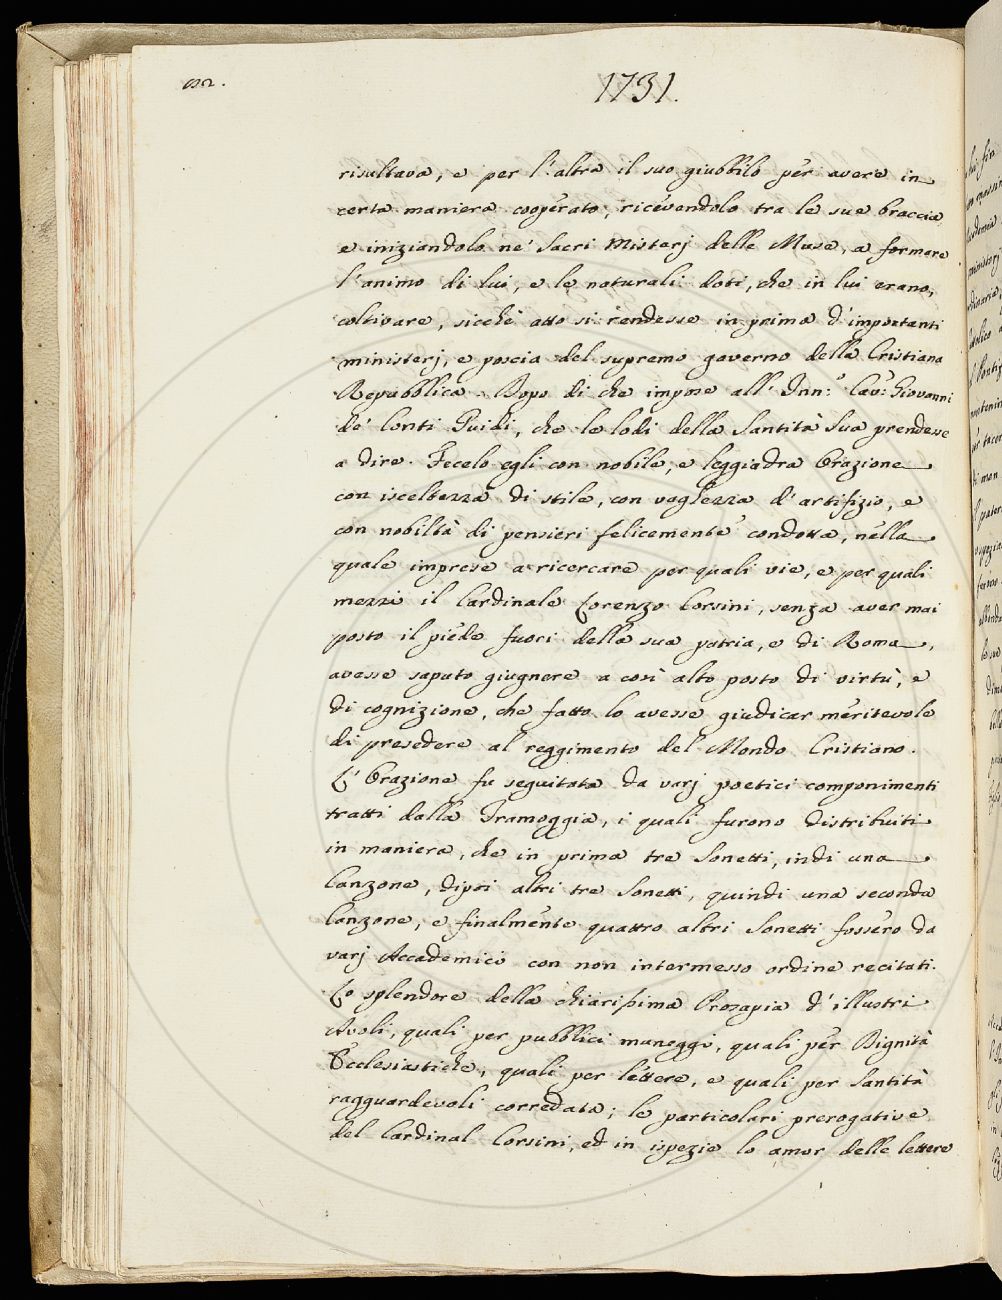 1731.
risultava, e per l'altra il suo giubbilo per avere in
certa maniera cooperato, ricevendolo tra le sue braccia
e iniziandolo ne' Sacri Misterj delle Muse, a formare
l'animo di lui, e le naturali doti, che in lui erano,
coltivare, sicchè atto si rendesse in prima d'importanti
ministerj, e poscia del supremo governo della Cristiana
Repubblica. Dopo di che impose all'Inn: Cav: Giovanni
de' Conti Guidi, che le lodi della Santità Sua prendesse
a dire. Fecelo egli con nobile, e leggiadra Orazione
con isceltezza di stile, con vaghezza d'artifizio, e
con nobiltà di pensieri felicemente condotta, nella
quale imprese a ricercare per quali vie, e per quali
mezzi il Cardinale Lorenzo Corsini, senza aver mai
posto il piede fuori della sua patria, e di Roma,
avesse saputo giugnere a così alto posto di virtù, e
di cognizione, che fatto lo avesse giudicar meritevole
di presedere al reggimento del Mondo Cristiano.
L'Orazione fu seguitata da varj poetici componimenti
tratti dalla Tramoggia, i quali furono distribuiti
in maniera, che in prima tre Sonetti, indi una
Canzone, dipoi altri tre Sonetti, quindi una seconda
Canzone, e finalmente quattro altri Sonetti fossero da
varj Accademici con non intermesso ordine recitati.
Lo splendore della chiarissima Prosapia d'illustri
Avoli, quali per pubblici maneggi, quali per Dignità
Ecclesiastiche, quali per lettere, e quali per Santità
ragguardevoli corredata; le particolari prerogative
del Cardinal Corsini, ed in ispezie lo amor delle lettere